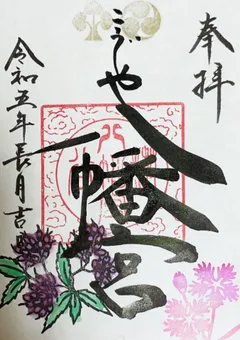 奉拝
こうじや
八幡宮
令和五年長月吉日